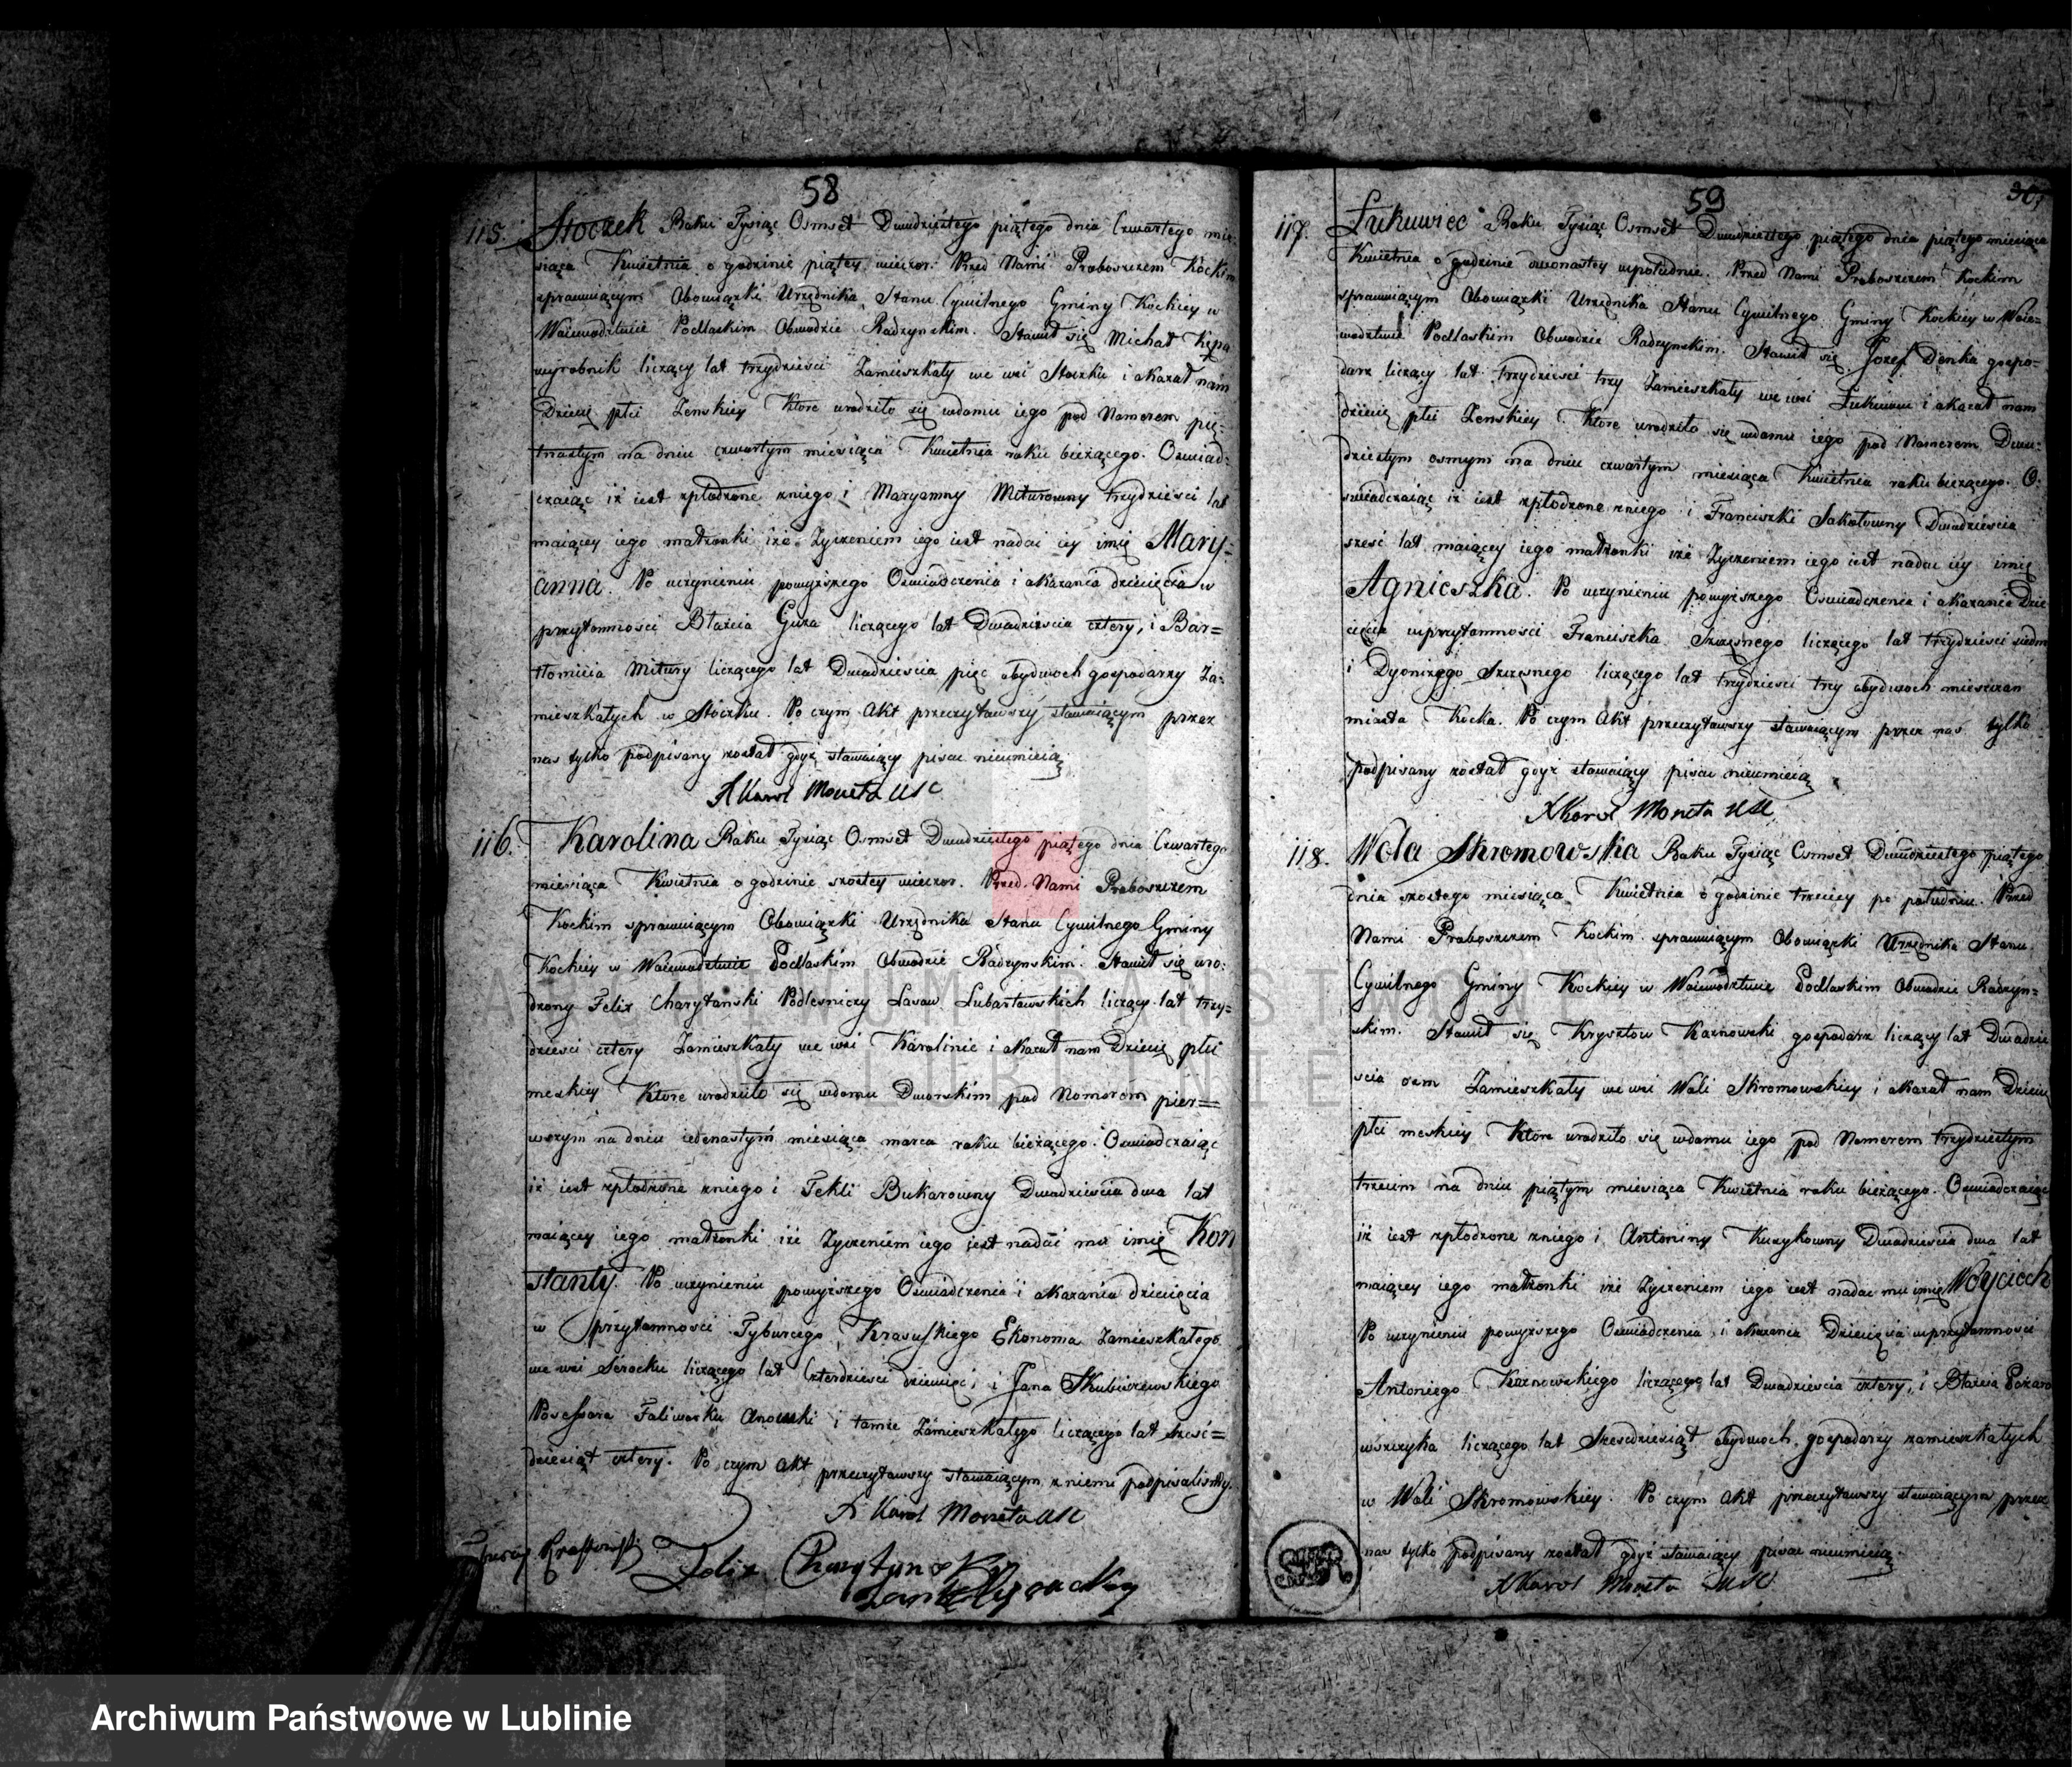 58
115. Stoczek Roku Tysiąc Osmset Dwudziestego piątego dnia Czwartego mie-
siąca Kwietnia o godzinie piątey wieczor. Przed Nami Proboszczem Kockim
sprawuiącym Obowiązki Urzędnika Stanu Cywilnego Gminy Kockiey w
Woiewodztwie Podlaskim Obwodzie Radzynskim. Stawił się Michał Kępa
wyrobnik liczący lat trzydziesci Zamieszkały we wsi Stoczku i okazał nam
Dziecię płci Zenskiey Ktore urodziło się wdomu iego pod Numerem pię-
tnastym na dniu czwartym miesiąca Kwietnia roku bieżącego. Oswiad-
czaiąc iż iest spłodzone zniego i Maryanny Miturowny trzydziesci lat
maiącey iego małżonki iże Zyczeniem iego iest nadać iey imię Mary-
anna. Po uczynieniu powyższego Oswiadczenia i okazania dziecięcia w
przytomnosci Błażeia Guza liczącego lat Dwadziescia cztery, i Bar=
tłomieia Mitury liczącego lat Dwadziescia pięc obydwoch gospodarzy Za-
mieszkałych w Stoczku. Po czym Akt przeczytawszy stawaiącym przez
nas tylko podpisany został gdyż stawaiący pisac nieumieią
X Karol Moneta USC
116. Karolina Roku Tysiąc Osmset Dwudziestego piątego dnia Czwartego
miesiąca Kwietnia o godzinie szostey wieczor. Przed Nami Proboszczem
Kockim sprawuiącym Obowiązki Urzędnika Stanu Cywilnego Gminy
Kockiey w Woiewodztwie Podlaskim Obwodzie Radzynskim. Stawił się uro-
dzony Felix Charytański Podlesniczy Lasow Lubartowskich liczący lat trzy-
dziesci cztery Zamieszkały we wsi Karolinie i okazał nam Dziecię płci
meskiey Ktore urodziło się wdomu Dworskim pod Nomorem pier=
wszym na dniu iedenastym miesiąca marca roku bieżącego. Oswiadczaiąc
iż iest spłodzone zniego i Tekli Bukarowny Dwadziescia dwa lat
maiącey iego małżonki iże Zyczeniem iego jest nadać mu imię Kon
stanty. Po uczynieniu powyższego Oswiadczenia i okazania dziecięcia
w przytomnosci Tyburcego Krasuskiego Ekonoma Zamieszkałego
we wsi Serocku liczącego lat Czterdziesci dziewięc, i Jana Skubiszewskiego
Possessora Folwarku i tamże Zamieszkałego liczącego lat szesc=
dziesiąt cztery. Po czym Akt przeczytawszy stawaiącym z niemi podpisalismy.
X Karol Moneta USC
Felix Charytanski
59
117. Łukuwiec Roku Tysiąc Osmset Dwudziestego piątego dnia piątego miesiąca
Kwietnia o godzinie dwonastey wpołudnie. Przed Nami Proboszczem Kockim
sprawuiącym Obowiązki Urzędnika Stanu Cywilnego Gminy Kockiey w Woie=
wodztwie Podlaskim Obwodzie Radzynskim. Stawił się Jozef Donka gospo-
darz liczący lat trzydziesci trzy Zamieszkały we wsi Łukuwcu i okazał nam
dziecię płci Zenskiey Ktore urodziło się wdomu iego pod Numerem Dwu-
dziestym osmym na dniu czwartym miesiąca Kwietnia roku bieżącego. O-
swiadczaiąc iż iest spłodzone zniego i Franciszki Sakołowny Dwadziescia
szesc lat maiącey iego małżonki iże Zyczeniem iego iest nadac iey imię
Agnieszka. Po uczynieniu powyższego Oswiadczenia i okazania Dzie
cięcia wprzytomnosci Franciszka Szczęsnego liczącego lat trzydziesci siedm
i Dyonizego Szczęsnego liczącego lat trzydziesci trzy obydwoch mieszczan
miasta Kocka. Po czym Akt przeczytawszy stawaiącym przez nas tylko
podpisany został gdyż stawaiący pisac nieumieią
X Karol Moneta USC
118. Wola Skromowska Roku Tysiąc Osmset Dwudziestego piątego
dnia szostego miesiąca Kwietnia o godzinie trzeciey po południu. Przed
Nami Proboszczem Kockim sprawuiącym Obowiązki Urzędnika Stanu
Cywilnego Gminy Kockiey w Woiewodztwie Podlaskim Obwodzie Radzyn=
skim. Stawił się Krysztow Kaznowski gospodarz liczący lat Dwadzie
scia osm Zamieszkały we wsi Woli Skromowskiey i okazał nam Dziecię
płci meskiey Ktore urodziło się wdomu iego pod Numerem trzydziestym
trzecim na dniu piątym miesiąca Kwietnia roku bieżącego. Oswiadczaiąc
iż iest spłodzone zniego i Antoniny Kuzykowny Dwadziescia dwa lat
maiącey iego małżonki iże Zyczeniem iego iest nadac mu imię Woyciech
Po uczynieniu powyższego Oswiadczenia i okazania Dziecięcia wprzytomnosci
Antoniego Kaznowskiego liczącego lat Dwadziescia cztery, i Błażeia Pożaro
wszczyka liczącego lat Szescdziesiąt obydwoch gospodarzy zamieszkałych
w Woli Skromowskiey. Po czym Akt przeczytawszy stawaiącym przez
nas tylko podpisany został gdyż stawaiący pisac nieumieią.
X Karol Moneta USC
ARCHIWUM PAŃSTWOWE
W LUBLINIE
Archiwum Państwowe w Lublinie